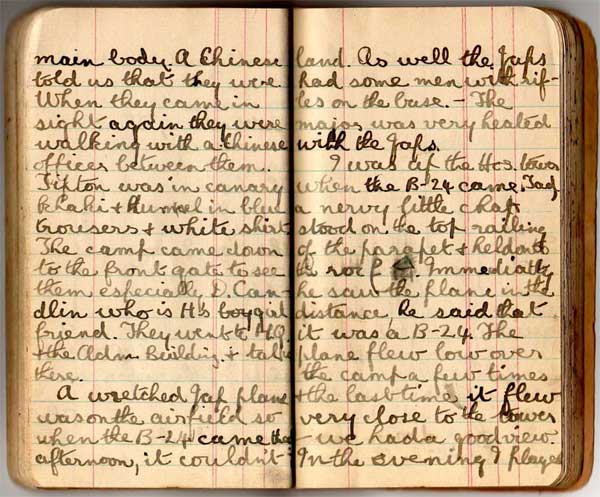 main body. A Chinese
told us that they were
When they came in
sight again they were
walking with a Chinese
officer between them.
Tipton was in canary
khaki & Hummel in blue
trousers & white shirt
The camp came down
to the front gate to see
them especially D. Can-
dlin who is H's boy girl
friend. They went to HQ.
& the Adm. Building. & talk
there.
A wretched Jap plane
was on the airfield so
when the B-24 came that
afternoon, it couldn't
land. As well the Japs
had some men with rif-
les on the base. - The
major was very heated
with the Japs.
I was up the Hos. tower
when the B-24 came. Tad
a nervy little chap
stood on the top railing
of the parapet & held onto
the roof. Immediately
he saw the plane in the
distance he said that
it was a B-24. The
plane flew low over
the camp a few times
& the last time it flew
very close to the tower
- we had a good view.
In the evening I played